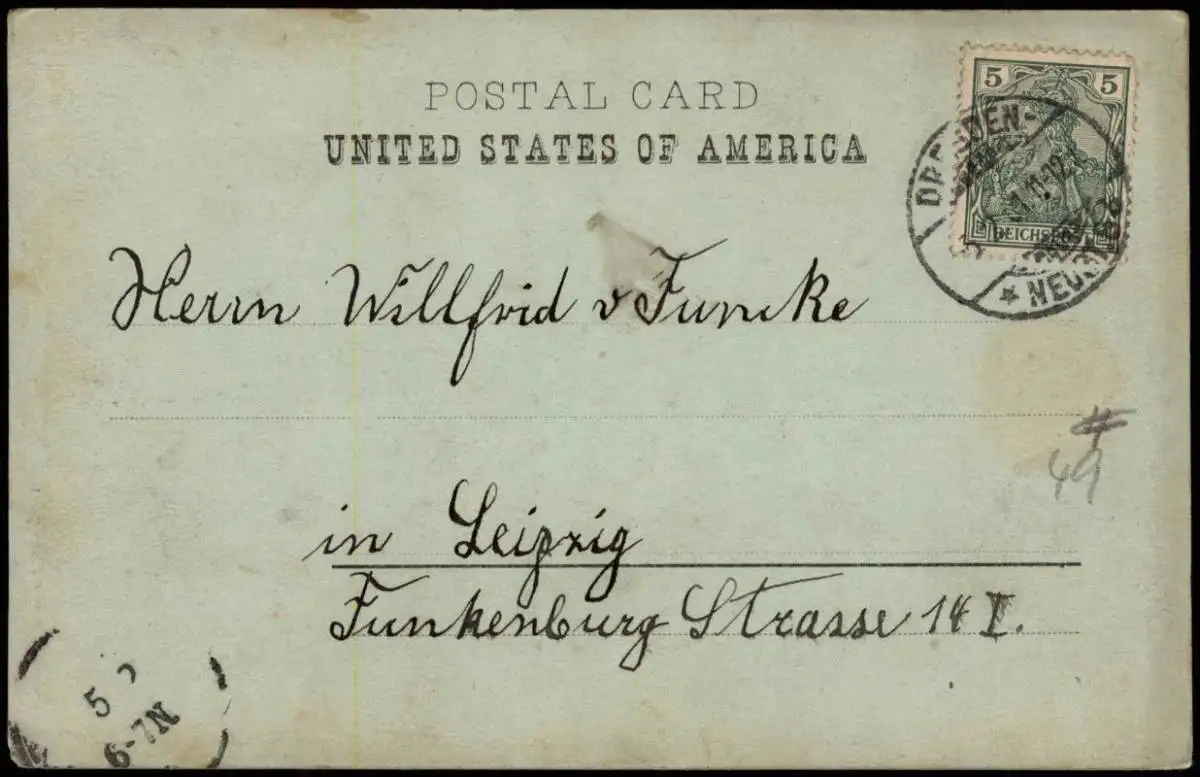 POSTAL CARD
UNITED STATES OF AMERICA
5 5
REICHSPOST
DRESDEN-
* NEUST
Herrn Willfrid v Funcke
#
49
in Leipzig
Funkenburg Strasse 14 I.
5
6-7N